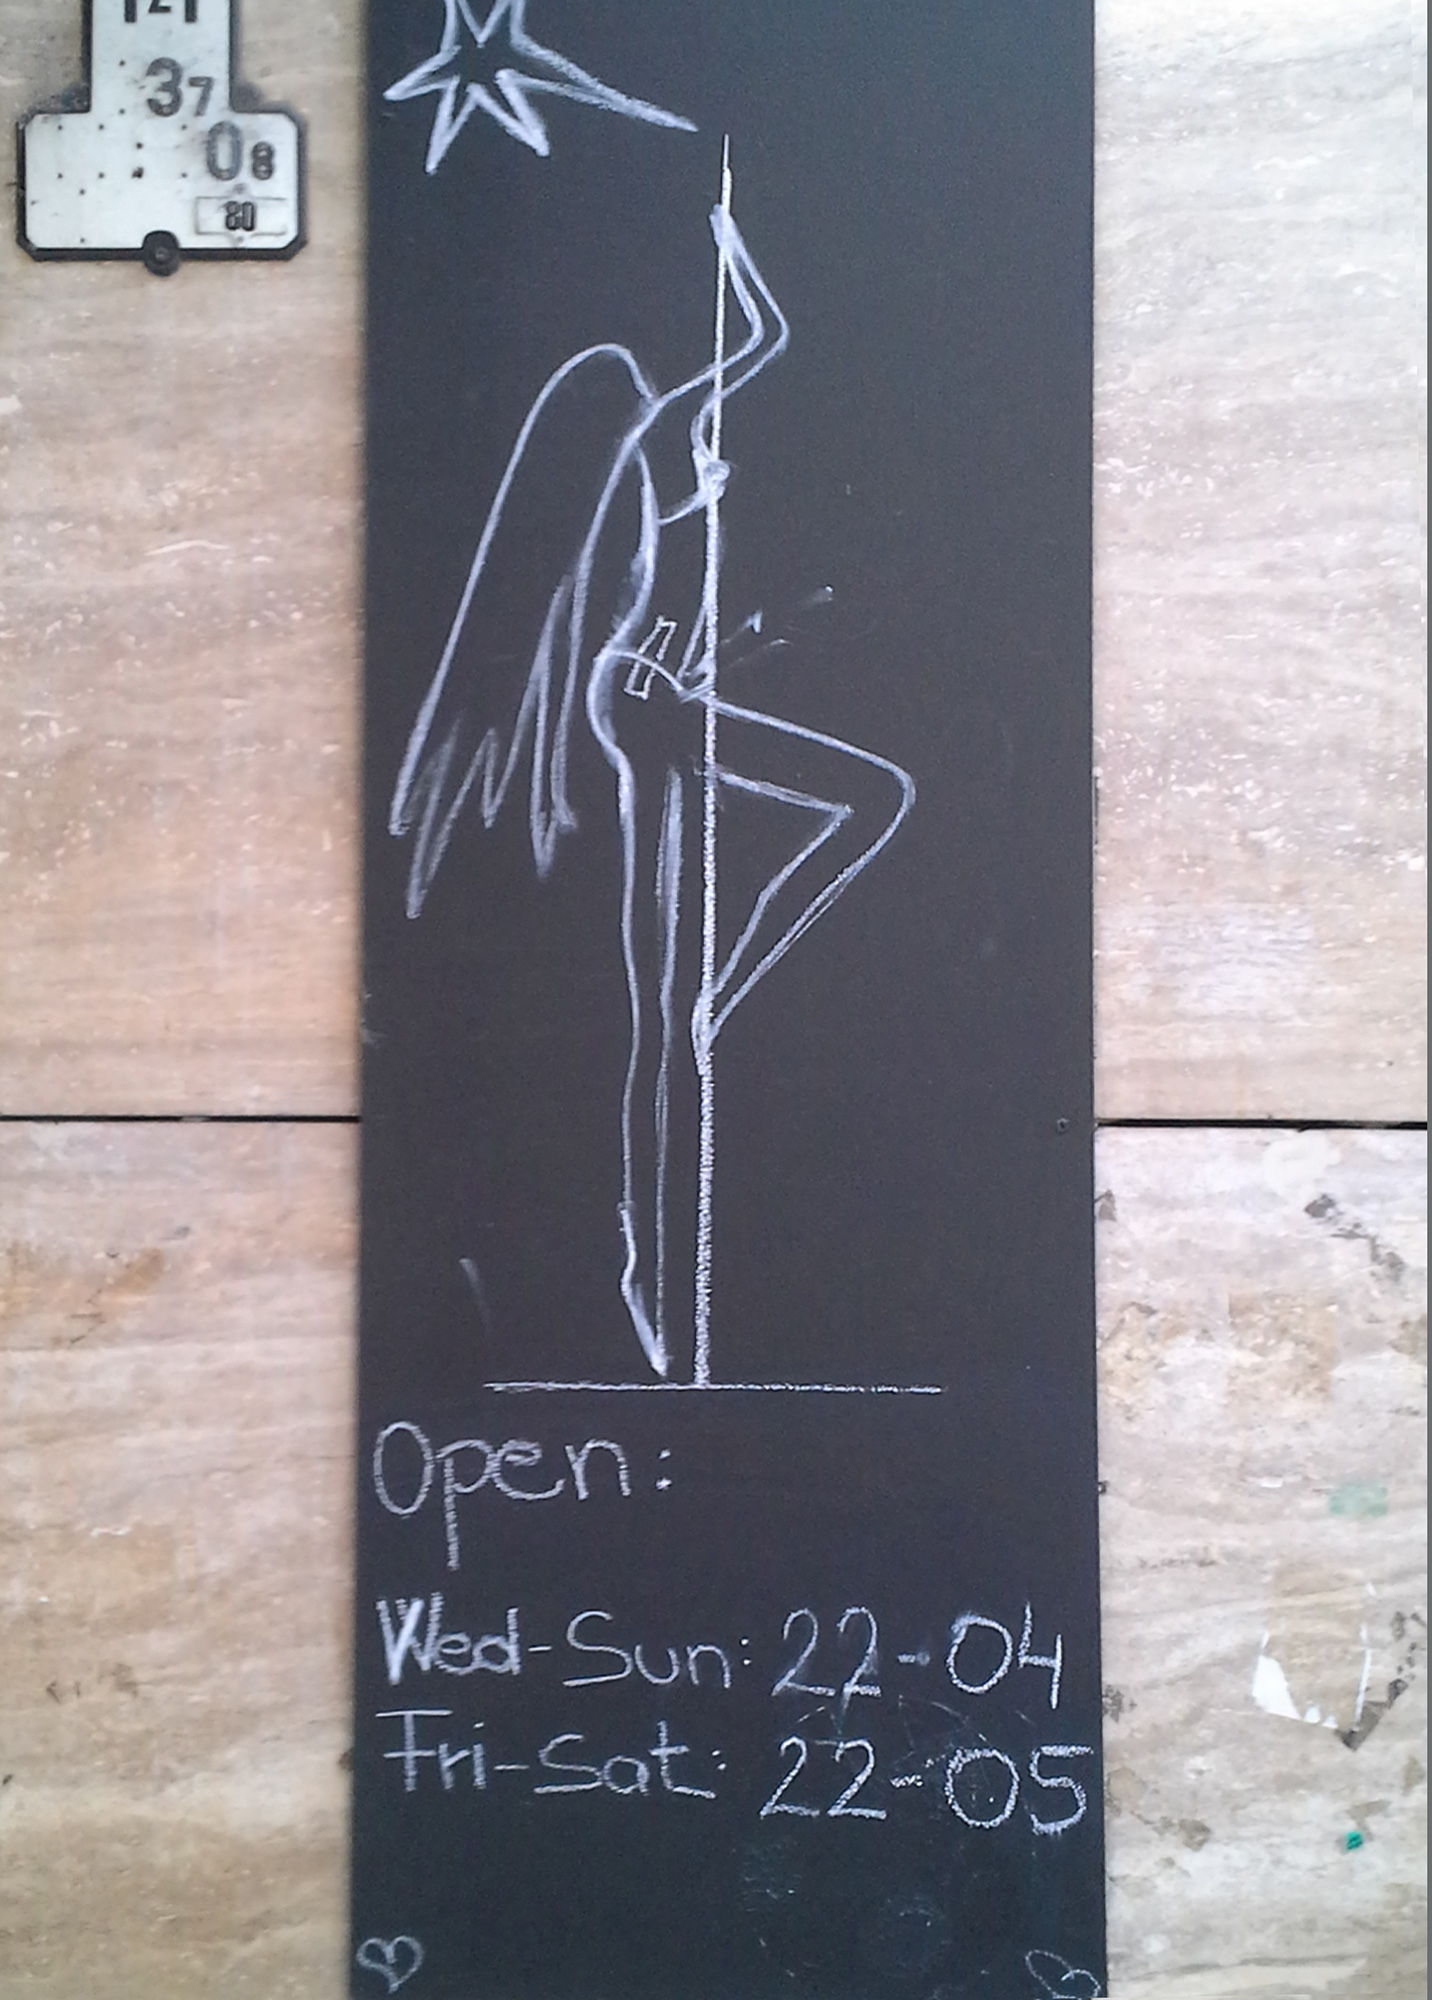 37
08
80
Open:
Wed-Sun: 22-04
Fri-Sat: 22-05